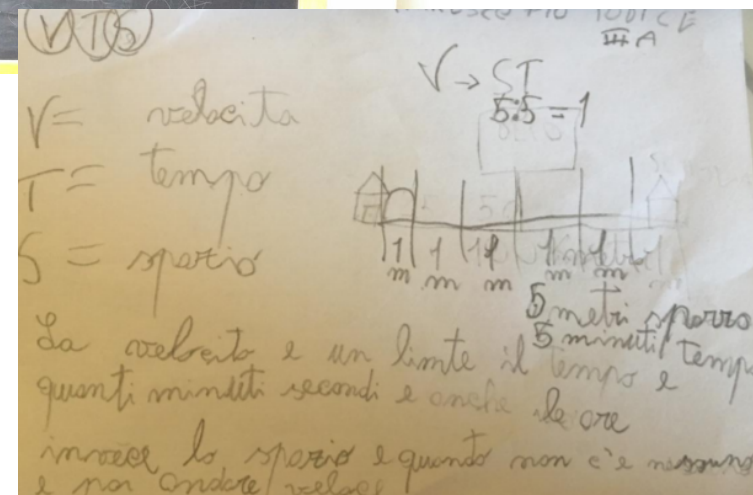 VTS
IODICE
III A
V → ST
5:5=1
V= velocita
T= tempo
S= spazio
1 1 1 1 1
m m m m m
5 metri spazio
5 minuti tempo
La velocita e un limte il tempo e
quanti minuti secondi e anche le ore
invece lo spazio e quando non c'e nessuno
e non andare veloce